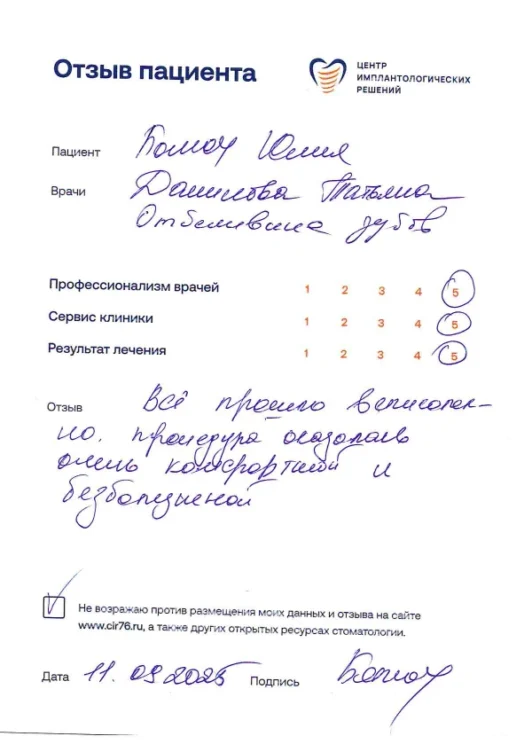 Отзыв пациента
ЦЕНТР
ИМПЛАНТОЛОГИЧЕСКИХ
РЕШЕНИЙ
Пациент Юлия
Врачи Данилова Татьяна
Отбеливание зубов
Профессионализм врачей 1 2 3 4 5
Сервис клиники 1 2 3 4 5
Результат лечения 1 2 3 4 5
Отзыв Всё прошло великолеп-
но. процедура оказалась
очень комфортной и
безболезненной
Не возражаю против размещения моих данных и отзыва на сайте
www.cir76.ru, а также других открытых ресурсах стоматологии.
Дата 11.09.2025 Подпись